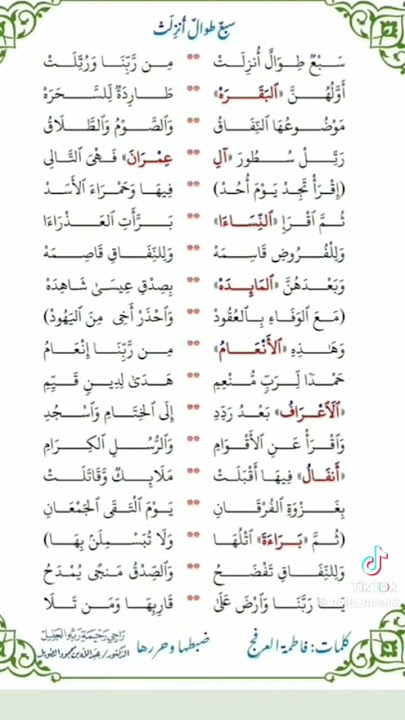 سبع طوالٌ أُنزِلَتْ
سَبْعٌ طِوَالٌ أُنزِلَتْ ** مِن رَّبِّنَا وَرُتِّلَتْ
أَوَّلُهُنَّ «البَقَرَهْ» ** طَارِدَةٌ لِّلسَّحَرَهْ
مَوْضُوعُهَا النِّفَاقُ ** وَالصَّوْمُ وَالطَّلَاقُ
رَتِّلْ سُطُورَ «آلِ ** عِمْرَانَ» فَهْيَ التَّالِي
(اِقْرَأْ تَجِدْ يَوْمَ أُحُدْ) ** فِيهَا وَحَمْرَاءَ الأَسَدْ
ثُمَّ اقْرَإِ «النِّسَاءَا» ** بَرَّأَتِ العَذْرَاءَا
وَلِلْفُرُوضِ قَاسِمَهْ ** وَلِلنِّفَاقِ قَاصِمَهْ
وَبَعْدَهُنَّ «المَائِدَهْ» ** بِصِدْقِ عِيسَىٰ شَاهِدَهْ
(مَعَ الوَفَاءِ بِالعُقُودْ ** وَاحْذَرْ أَخِي مِنَ اليَهُودْ)
وَهَذِهِ «الأَنْعَامُ» ** مِن رَّبِّنَا إِنْعَامُ
حَمْدًا لِّرَبٍّ مُنْعِمِ ** هَدَىٰ لِدِينٍ قَيِّمِ
«الأَعْرَافُ» بَعْدُ رَدِّدِ ** إِلَى الخِتَامِ وَاسْجُدِ
وَاقْرَأْ عَنِ الأَقْوَامِ ** وَالرُّسُلِ الكِرَامِ
«أَنفَالُ» فِيهَا أَقْبَلَتْ ** مَلَائِكٌ وَّقَاتَلَتْ
بِغَزْوَةِ الفُرْقَانِ ** يَوْمَ الْتَقَى الجَمْعَانِ
(ثُمَّ «بَرَاءَةَ» اتْلُهَا ** وَلَا تُبَسْمِلَنْ بِهَا)
وَلِلنِّفَاقِ تَفْضَحُ ** وَالصِّدْقُ مَنجًى يُمْدَحُ
يَا رَبَّنَا وَارْضَ عَلَىٰ ** قَارِيهَا وَمَن تَلَا
كلمات: فاطمة العرفج
ضبطها وحررها
راجي رحمة ربه الجليل
الدكتور/ عبدالله بن محمود الطويل
TikTok